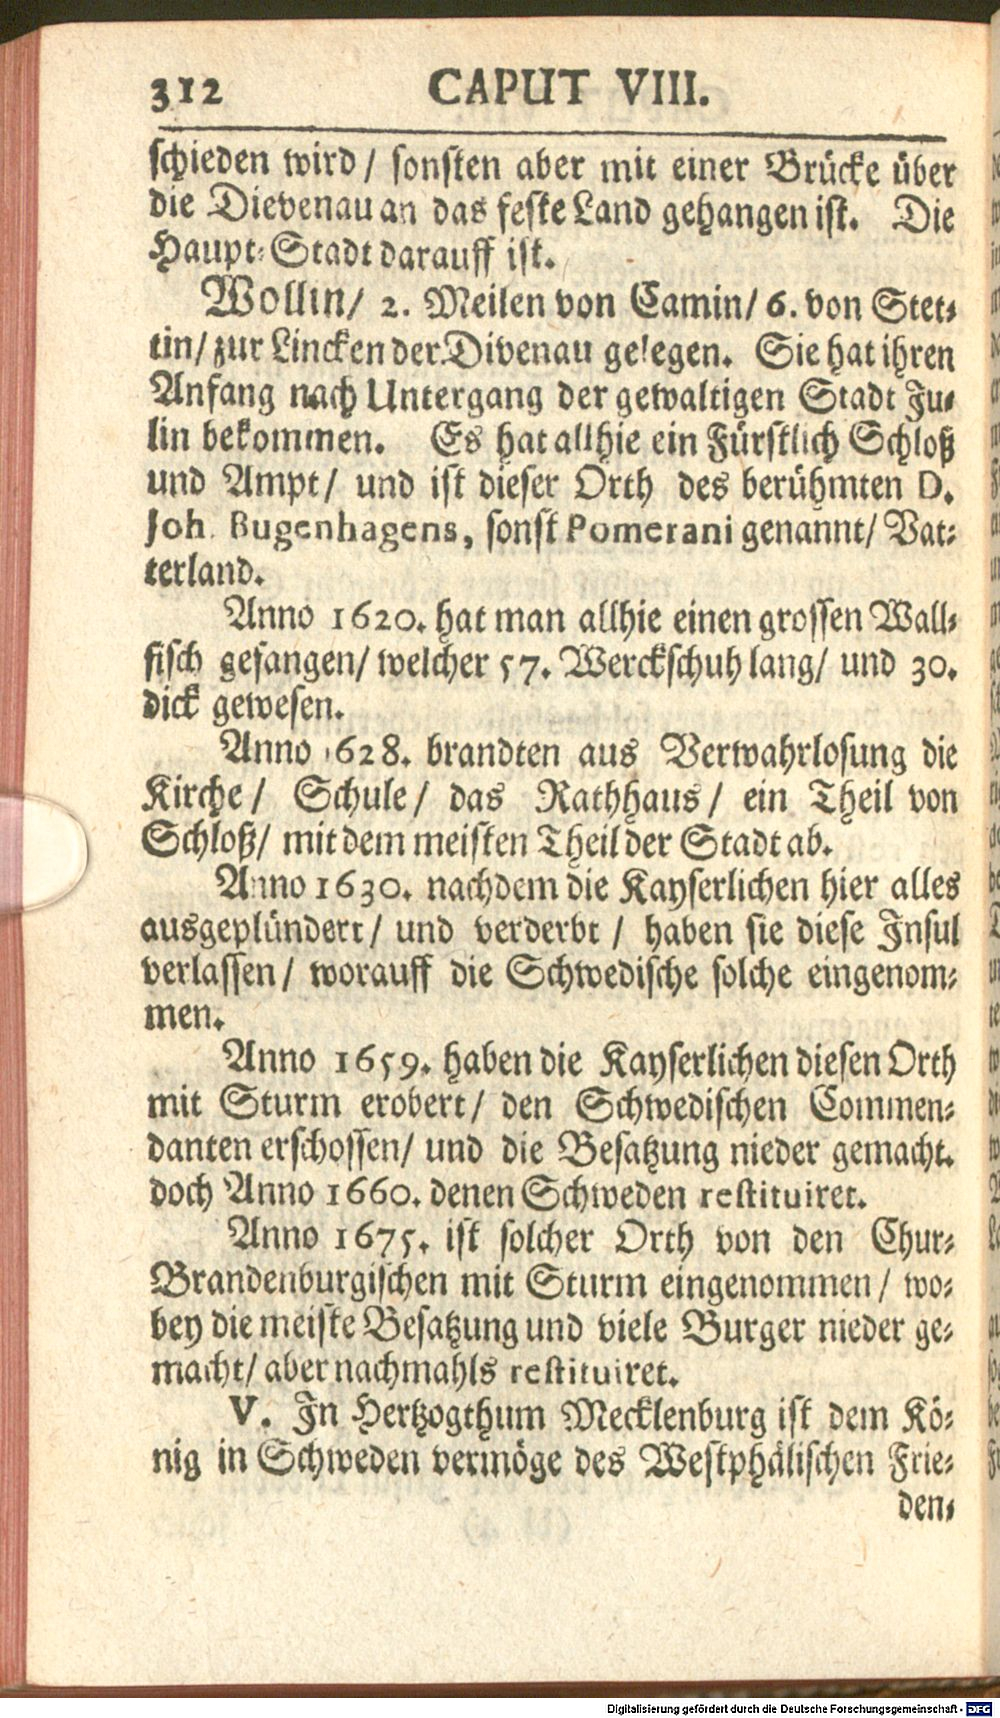 312 CAPUT VIII.
schieden wird/ sonsten aber mit einer Brücke über
die Dievenau an das feste Land gehangen ist. Die
Haupt-Stadt darauff ist.
Wollin/ 2. Meilen von Camin/ 6. von Stet-
tin/ zur Lincken der Divenau gelegen. Sie hat ihren
Anfang nach Untergang der gewaltigen Stadt Ju-
lin bekommen. Es hat allhie ein Fürstlich Schloß
und Ampt/ und ist dieser Orth des berühmten D.
Joh. Bugenhagens, sonst Pomerani genannt/ Vat-
terland.
Anno 1620. hat man allhie einen grossen Wall-
fisch gefangen/ welcher 57. Werckschuh lang/ und 30.
dick gewesen.
Anno 1628. brandten aus Verwahrlosung die
Kirche/ Schule/ das Rathhaus/ ein Theil von
Schloß/ mit dem meisten Theil der Stadt ab.
Anno 1630. nachdem die Kayserlichen hier alles
ausgeplündert/ und verderbt/ haben sie diese Insul
verlassen/ worauff die Schwedische solche eingenom-
men.
Anno 1659. haben die Kayserlichen diesen Orth
mit Sturm erobert/ den Schwedischen Commen-
danten erschossen/ und die Besatzung nieder gemacht.
doch Anno 1660. denen Schweden restituiret.
Anno 1675. ist solcher Orth von den Chur-
Brandenburgischen mit Sturm eingenommen/ wo-
bey die meiste Besatzung und viele Burger nieder ge-
macht/ aber nachmahls restituiret.
V. In Hertzogthum Mecklenburg ist dem Kö-
nig in Schweden vermöge des Westphälischen Frie-
den-
Digitalisierung gefördert durch die Deutsche Forschungsgemeinschaft - DFG